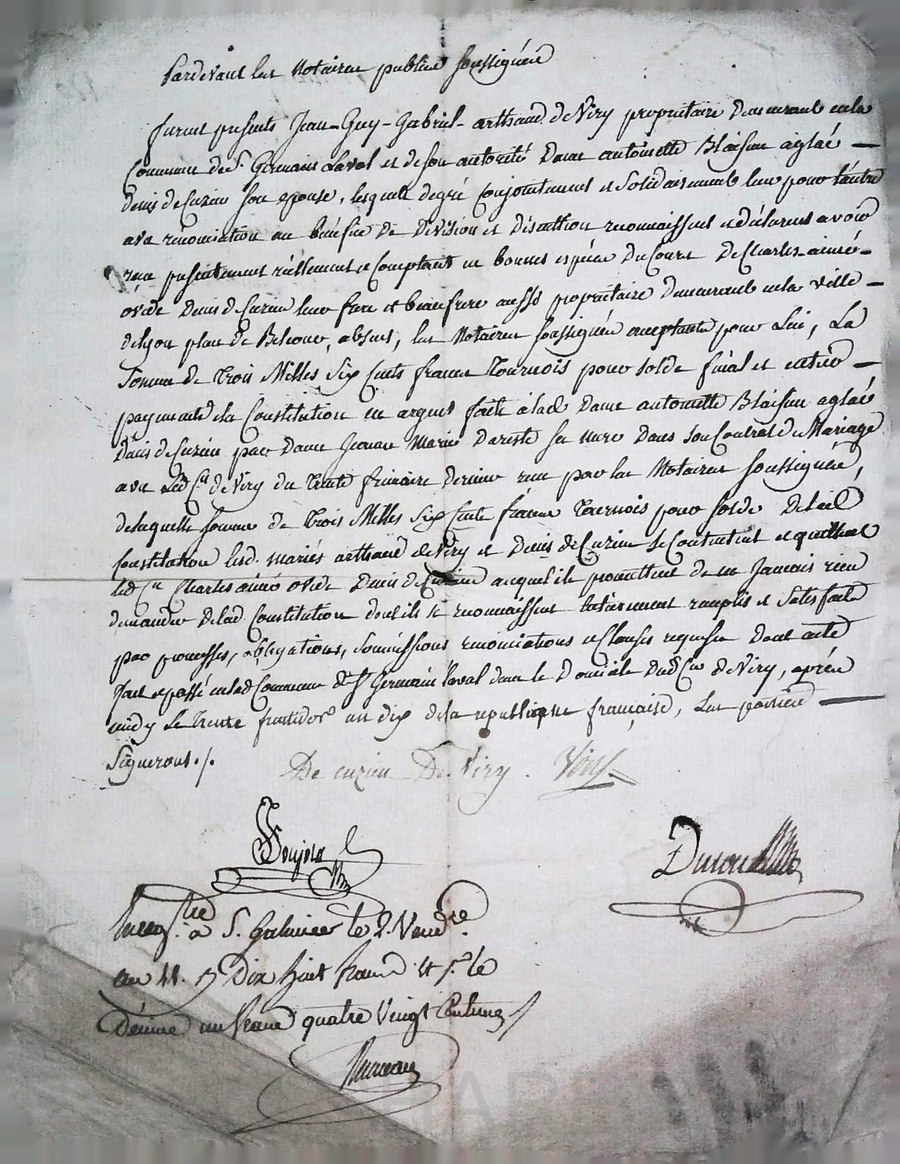 Pardevant les Notaires publics soussignés
furent presents Jean-Guy-Gabriel-arthaud de Viry propriétaire demeurant en la
Commune de St Germain Laval et de son autorité Dame antoinette Blaisine aglaé —
denis de Cuzieu son epouse, lesquels de gré Conjointement et Solidairement l'un pour l'autre
avec rénonciation au bénéfice de Division et discution reconnaissent et déclarent avoir
reçu presentement réellement et Comptant en bonnes espèces du Cours De Charles-aimé-
ovide Denis de Cuzieu leur frere et beaufrere aussi propriétaire demeurant en la ville —
de Lyon place de Belcour, absent, les Notaires soussignés acceptants pour Lui, La
Somme de Trois Milles Six Cents francs Tournois pour solde final et entier —
payement de la Constitution en argent faite à lad. Dame antoinette Blaisine aglaé
Denis de Cuzieu par Dame Jeanne Marie Dareste sa mere dans son Contrat de Mariage
avec Led. Cn de Viry du Trente frimaire dernier reçu par les Notaires soussignés,
de laquelle somme de Trois Milles Six Cents francs Tournois pour solde De lad.
Constitution lesd. mariés arthaud de Viry et Denis de Cuzieu se Contentent et quittent
led. Cn Charles aimé ovide Denis de Cuzieu auquel ils promettent de ne Jamais rien
demander de lad. Constitution dont ils se reconnaissent entierement remplis et Satisfaits
par promesses, obligations, soumissions renonciations et Clauses requises Dont acte
fait et passé en lad. Commune de St Germain Laval dans le Domicile dud. Cn de Viry, après
midy le Trente fructidor an dix de la republique française, Les parties —
Signerons ./.
De cuzieu De Viry . Viry
Enregtré à St. Galmier le 2. Vendre.
an 11. Dix huit francs
Décime un franc quatre Vingt Centimes